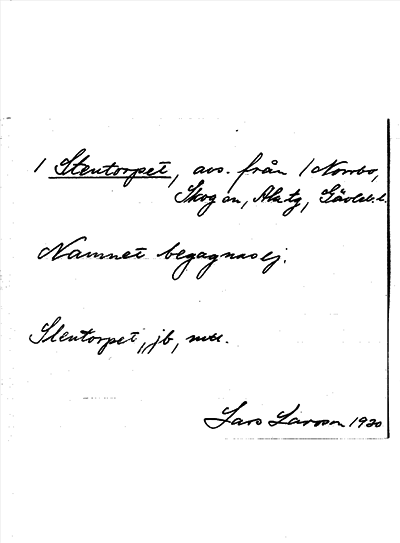 1 Stentorpet, avs. från 1 Norrbo,
Skogen, Alstg, Gävleb. l.
Namnet begagnas ej.
Stentorpet, jb, mtl.
Lars Larsson 1920